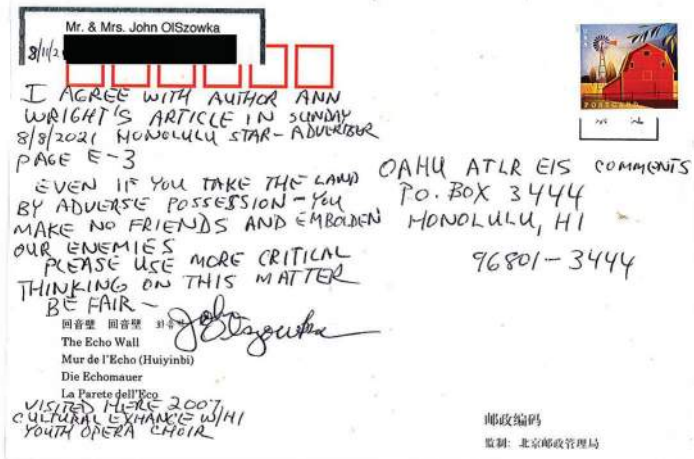 Mr. & Mrs. John OlSzowka
8/11/2
I AGREE WITH AUTHOR ANN
WRIGHT'S ARTICLE IN SUNDAY
8/8/2021 HONOLULU STAR-ADVERTISER
PAGE E-3
EVEN IF YOU TAKE THE LAND
BY ADVERSE POSSESSION - YOU
MAKE NO FRIENDS AND EMBOLDEN
OUR ENEMIES
PLEASE USE MORE CRITICAL
THINKING ON THIS MATTER
BE FAIR -
John Olszowka
回音壁 回音壁
The Echo Wall
Mur de l'Echo (Huiyinbi)
Die Echomauer
La Parete dell'Eco
VISITED HERE 2007
CULTURAL EXHANCE W/HI
YOUTH OPERA CHOIR
POSTCARD
OAHU ATLR EIS COMMENTS
P.O. BOX 3444
HONOLULU, HI
96801-3444
邮政编码
监制: 北京邮政管理局